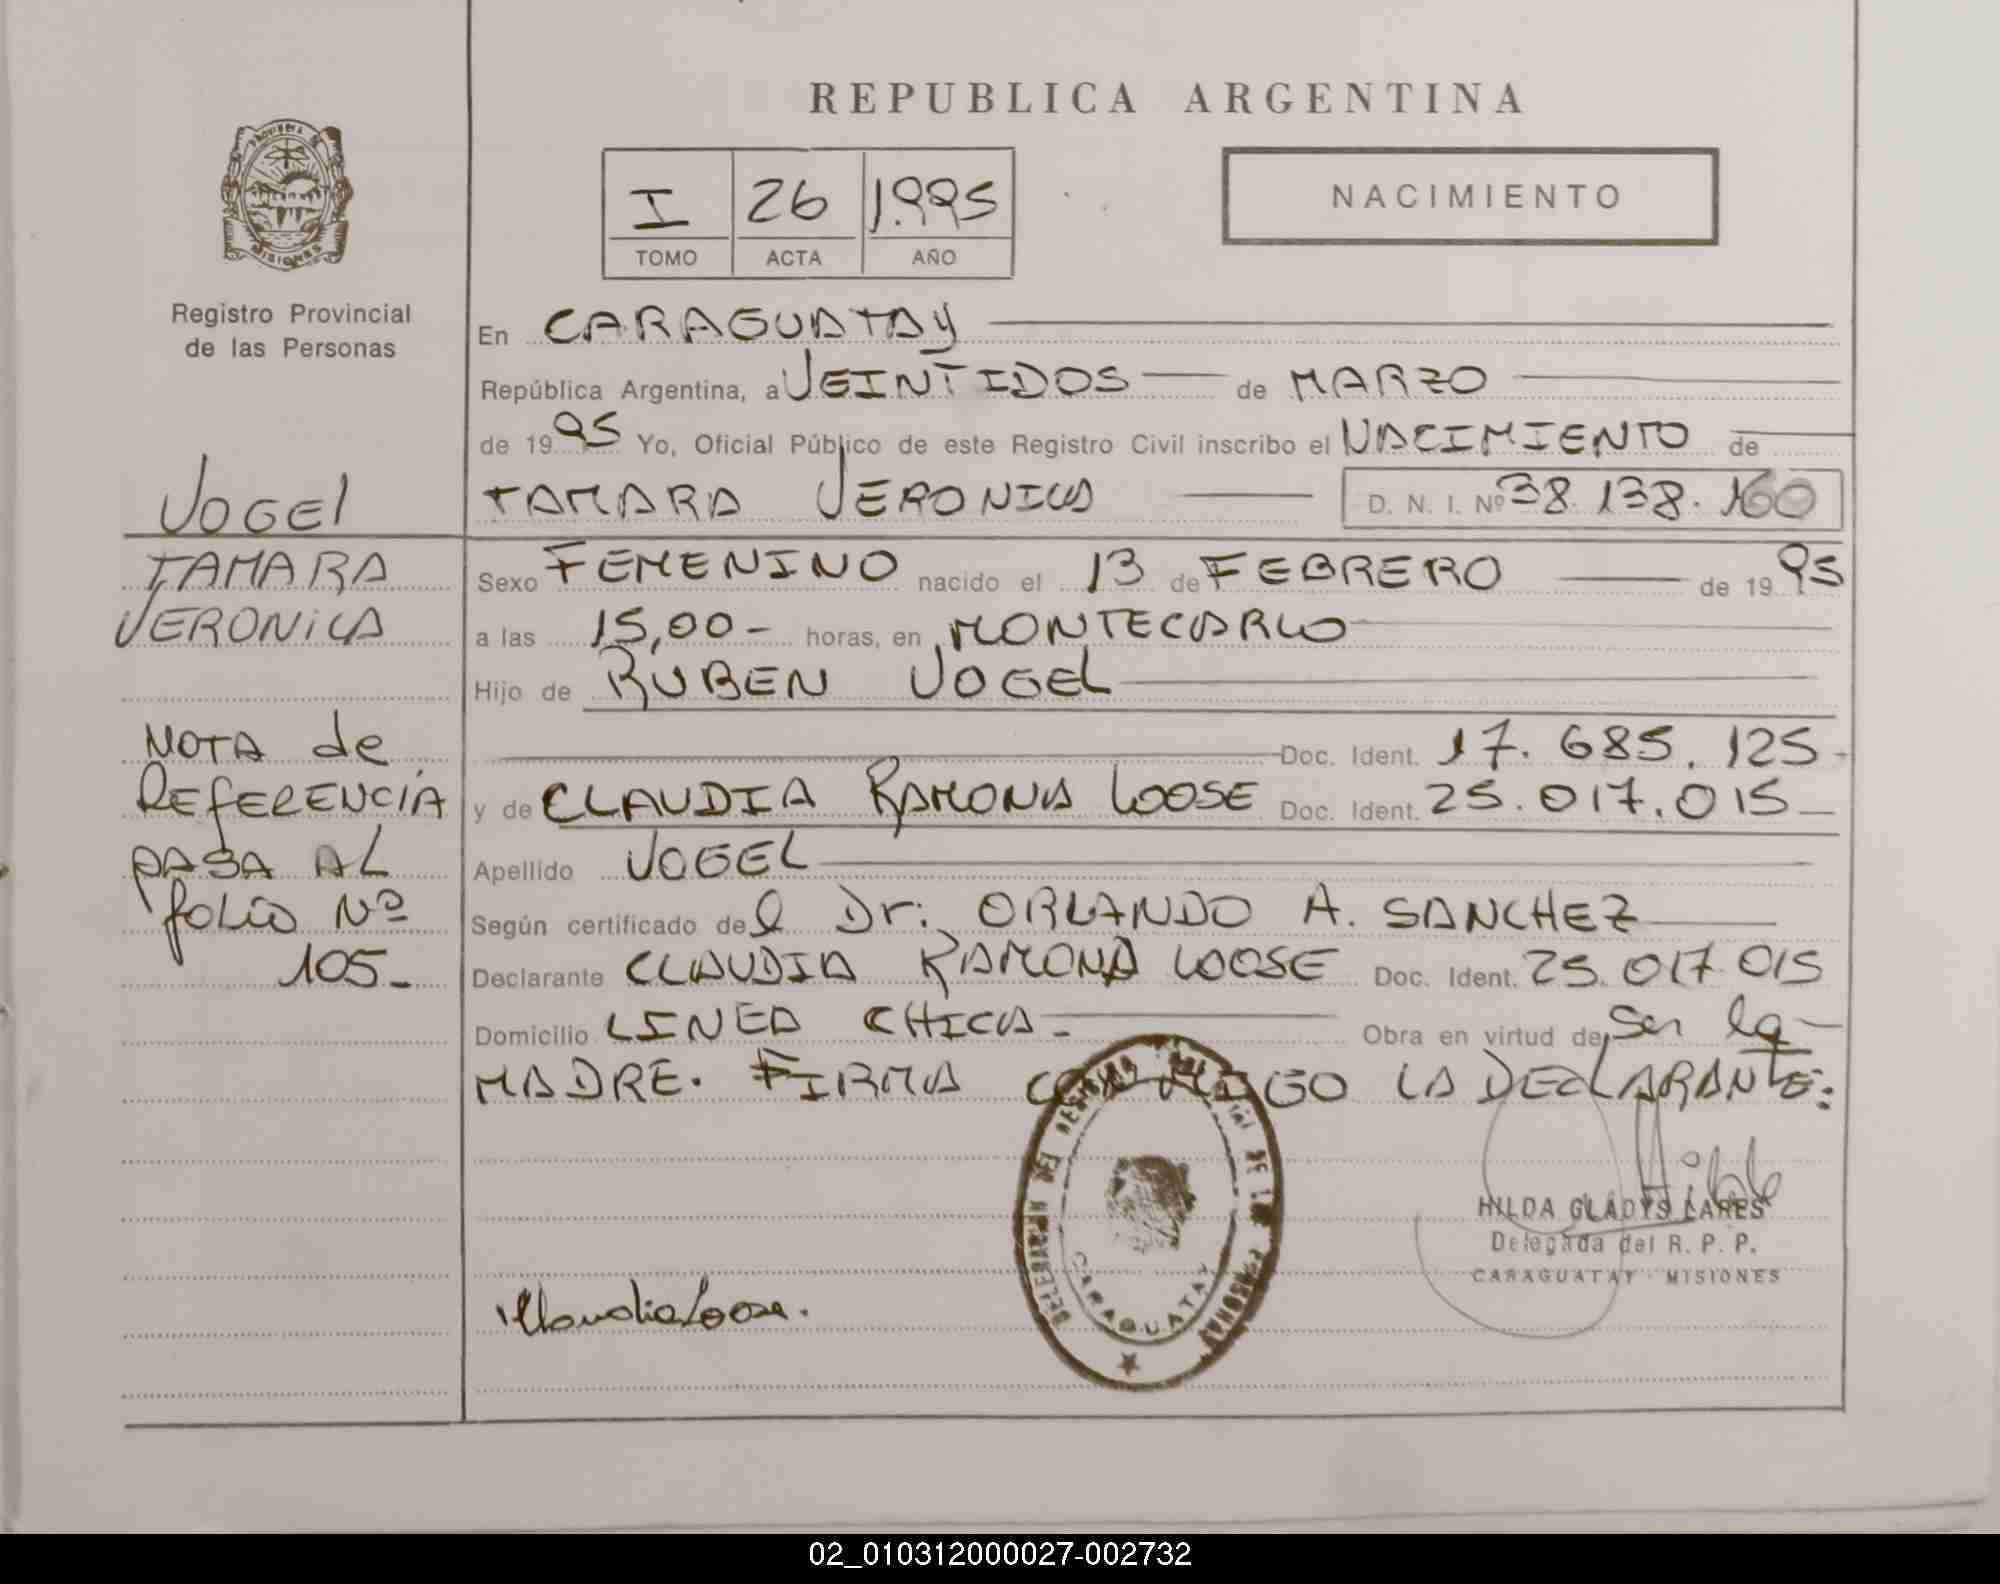 REPUBLICA ARGENTINA
PROVINCIA DE
MISIONES
Registro Provincial
de las Personas
I 26 1.995
TOMO ACTA AÑO
NACIMIENTO
En CARAGUATAY
República Argentina, a VEINTIDOS de MARZO
de 1995 Yo, Oficial Público de este Registro Civil inscribo el NACIMIENTO de
TAMARA VERONICA D. N. I. Nº 38.138.160
Sexo FEMENINO nacido el 13 de FEBRERO de 1995
a las 15,00- horas, en MONTECARLO
Hijo de RUBEN VOGEL
Doc. Ident. 17.685.125-
y de CLAUDIA RAMONA LOOSE Doc. Ident. 25.017.015
Apellido VOGEL
Según certificado del Dr: ORLANDO A. SANCHEZ
Declarante CLAUDIA RAMONA LOOSE Doc. Ident. 25.017.015
Domicilio LINEA CHICA- Obra en virtud de ser la
MADRE. FIRMA CONMIGO LA DECLARANTE:
VOGEl
TAMARA
VERONICA
NOTA de
REfERENCIA
PASA AL
folio Nº
105-
Claudia Loose.
DELEGACION DEL REGISTRO PROVINCIAL DE LAS PERSONAS
CARAGUATAY
HILDA GLADYS LARES
Delegada del R. P. P.
CARAGUATAY - MISIONES
02_010312000027-002732